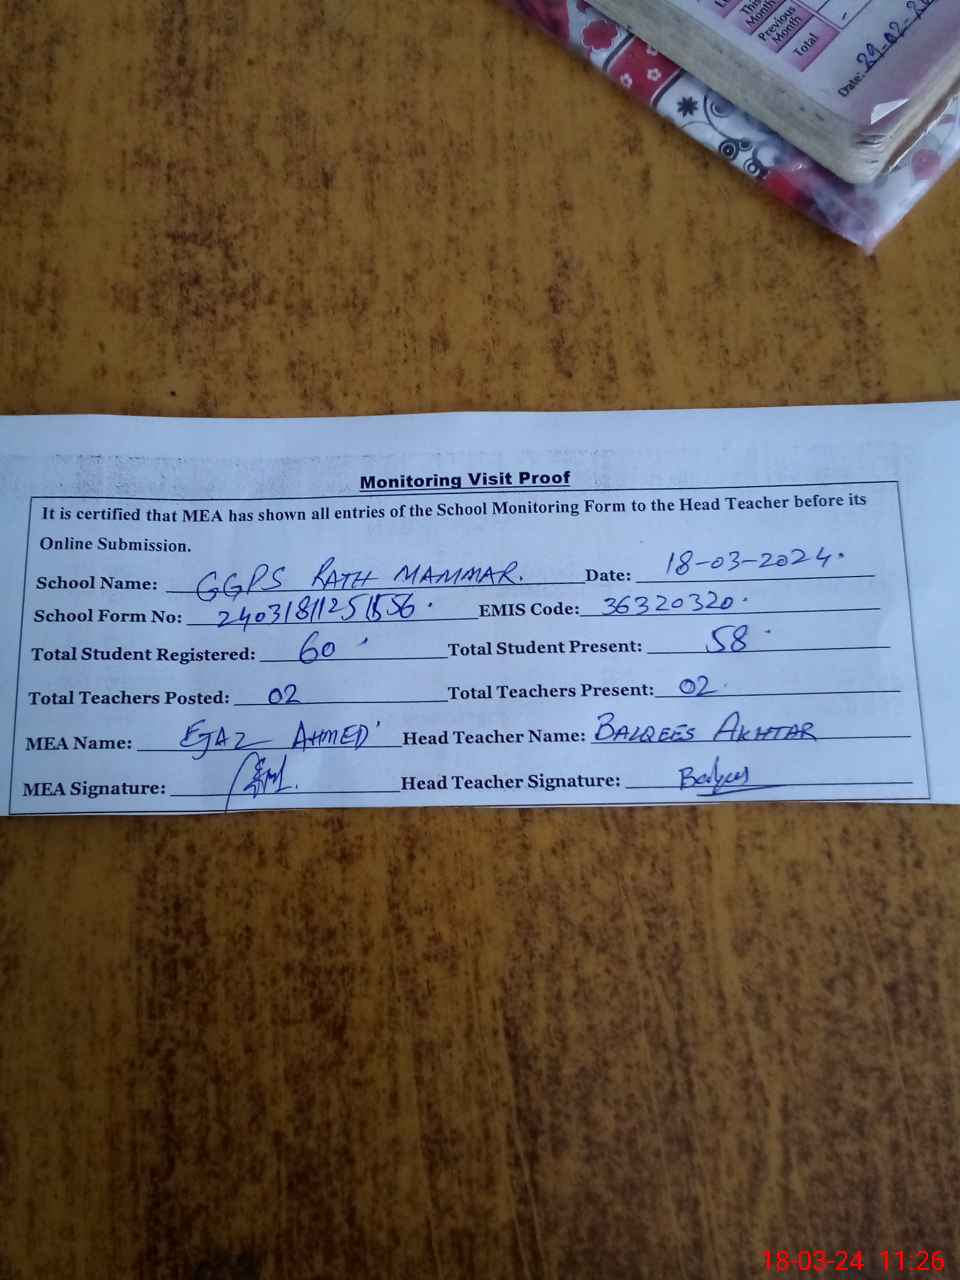 This
Month
Previous
Month
Total
Date: 29-02-
Monitoring Visit Proof
It is certified that MEA has shown all entries of the School Monitoring Form to the Head Teacher before its
Online Submission.
School Name: GGPS RATH MAMMAR. Date: 18-03-2024.
School Form No: EMIS Code: 36320320.
Total Student Registered: 60 Total Student Present: 58
Total Teachers Posted: 02 Total Teachers Present: 02
MEA Name: EJAZ AHMED Head Teacher Name: BALQEES AKHTAR
MEA Signature: Head Teacher Signature: Balqees
18-03-24 11:26